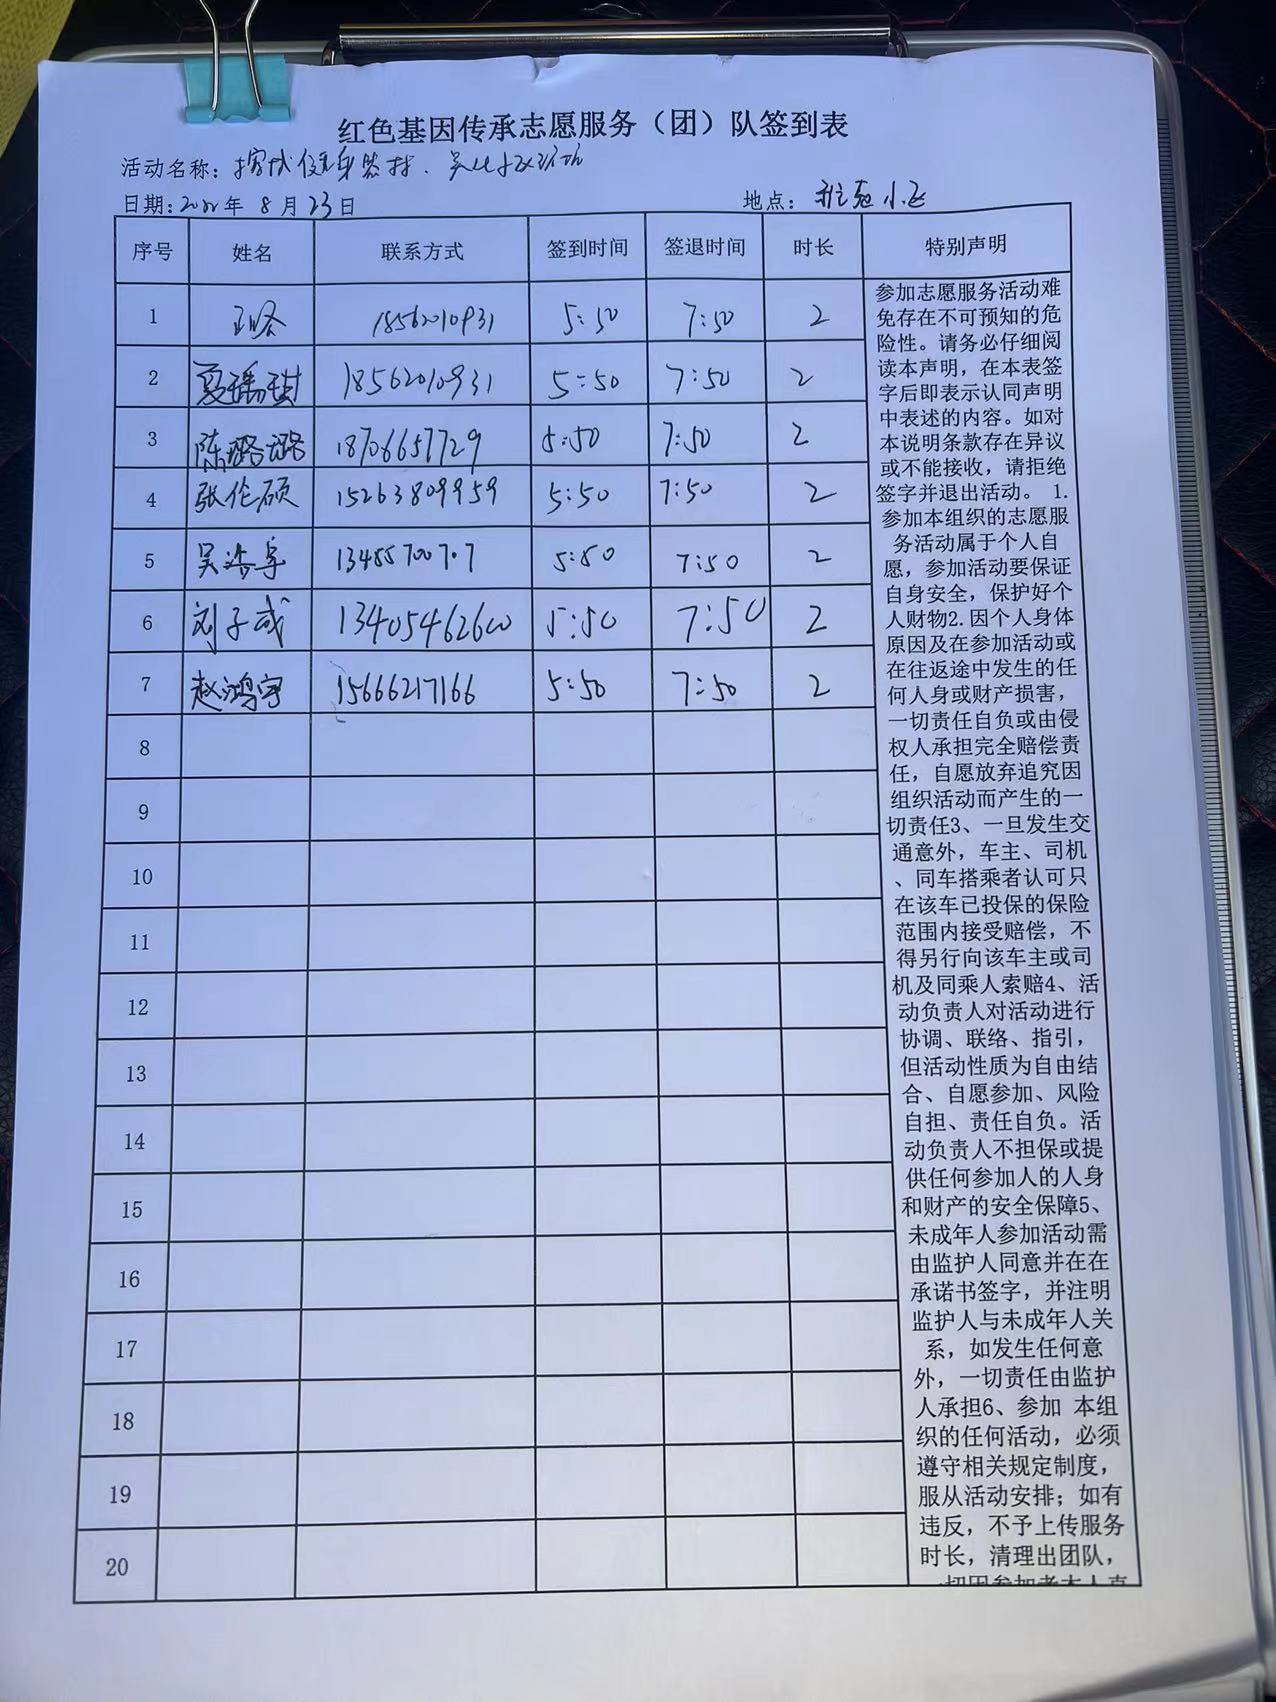 红色基因传承志愿服务（团）队签到表
活动名称：擦拭健身器材、
日期：2022年 8月23日 地点：
序号 姓名 联系方式 签到时间 签退时间 时长 特别声明
1 18562010931 5:50 7:50 2
2 夏瑀琪 18562010931 5:50 7:50 2
3 陈璐璐 18706657729 5:50 7:50 2
4 张伦硕 15263809959 5:50 7:50 2
5 吴浩宇 13455700707 5:50 7:50 2
6 刘子成 13405462600 5:50 7:50 2
7 赵鸿宇 15666217166 5:50 7:50 2
8
9
10
11
12
13
14
15
16
17
18
19
20
参加志愿服务活动难
免存在不可预知的危
险性。请务必仔细阅
读本声明，在本表签
字后即表示认同声明
中表述的内容。如对
本说明条款存在异议
或不能接收，请拒绝
签字并退出活动。 1.
参加本组织的志愿服
务活动属于个人自
愿，参加活动要保证
自身安全，保护好个
人财物2.因个人身体
原因及在参加活动或
在往返途中发生的任
何人身或财产损害，
一切责任自负或由侵
权人承担完全赔偿责
任，自愿放弃追究因
组织活动而产生的一
切责任3、一旦发生交
通意外，车主、司机
、同车搭乘者认可只
在该车已投保的保险
范围内接受赔偿，不
得另行向该车主或司
机及同乘人索赔4、活
动负责人对活动进行
协调、联络、指引，
但活动性质为自由结
合、自愿参加、风险
自担、责任自负。活
动负责人不担保或提
供任何参加人的人身
和财产的安全保障5、
未成年人参加活动需
由监护人同意并在在
承诺书签字，并注明
监护人与未成年人关
系，如发生任何意
外，一切责任由监护
人承担6、参加 本组
织的任何活动，必须
遵守相关规定制度，
服从活动安排；如有
违反，不予上传服务
时长，清理出团队，